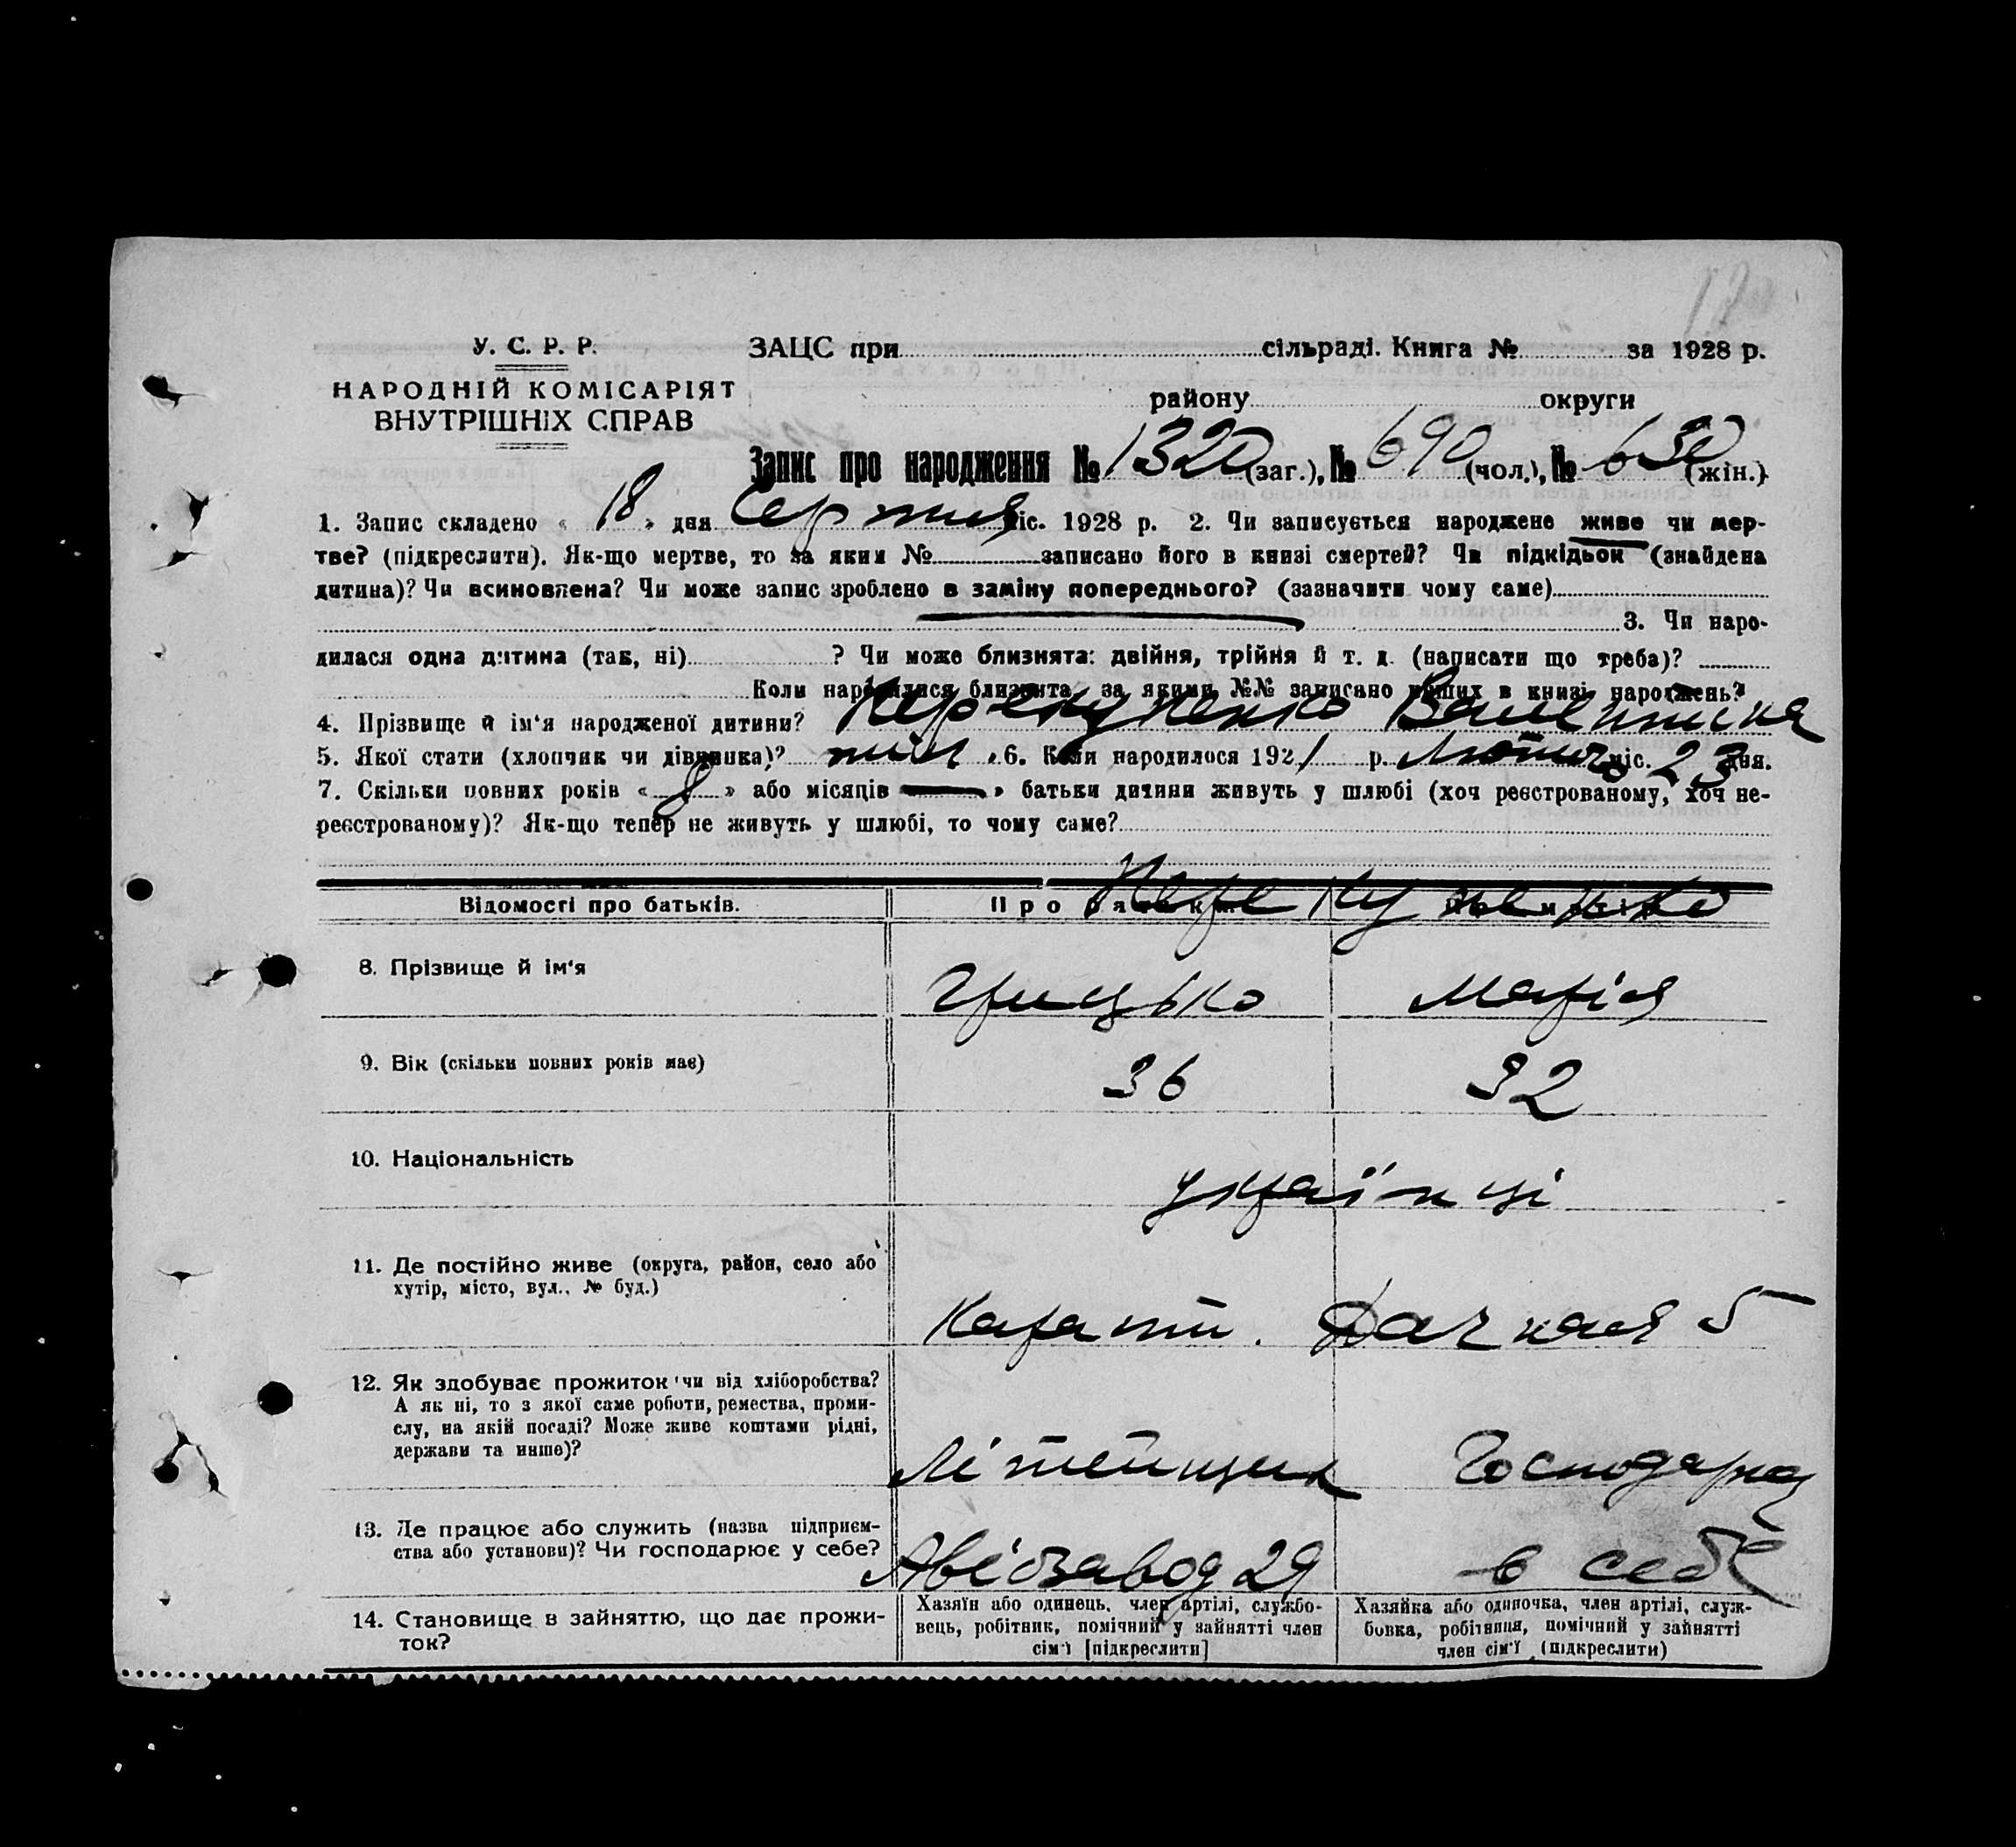 У. С. Р. Р.
НАРОДНІЙ КОМІСАРІЯТ
ВНУТРІШНІХ СПРАВ
ЗАЦС при сільраді. Книга № за 1928 р.
району округи
Запис про народження № 1320 (заг.), № 690 (чол.), № 630 (жін.)
1. Запис складено « 18 » дня Серпня міс. 1928 р. 2. Чи записується народжене живе чи мер-
тве? (підкреслити). Як-що мертве, то за яким № записано його в книзі смертей? Чи підкідьок (знайдена
дитина)? Чи всиновлена? Чи може запис зроблено в заміну попереднього? (зазначити чому саме)
3. Чи наро-
дилася одна дитина (так, ні) ? Чи може близнята: двійня, трійня й т. д. (написати що треба)?
Коли народилися близнята, за якими №№ записано інших в книзі народжень?
4. Прізвище й ім'я народженої дитини? Перекупенко Валентина
5. Якої стати (хлопчик чи дівчинка)? 6. Коли народилося 1921 р. Лютого міс. 23 дня.
7. Скільки повних років « 8 » або місяців » батьки дитини живуть у шлюбі (хоч реєстрованому, хоч не-
реєстрованому)? Як-що тепер не живуть у шлюбі, то чому саме?
Відомості про батьків. Про батька
8. Прізвище й ім'я Перекупенко
Грицько Марія
9. Вік (скільки повних років має) 36 32
10. Національність українці
11. Де постійно живе (округа, район, село або
хутір, місто, вул., № буд.)
Карант. Дачная 5
12. Як здобуває прожиток чи від хліборобства?
А як ні, то з якої саме роботи, ремества, проми-
слу, на якій посаді? Може живе коштами рідні,
держави та инше)?
Літейщик Господарка
13. Де працює або служить (назва підприєм-
ства або установи)? Чи господарює у себе?
Авіозавод 29 в себе
14. Становище в зайняттю, що дає прожи-
ток?
Хазяїн або одинець, член артілі, службо-
вець, робітник, помічний у зайнятті член
сім'ї [підкреслити]
Хазяйка або одиночка, член артілі, служ-
бовка, робітниця, помічний у зайнятті
член сім'ї (підкреслити)